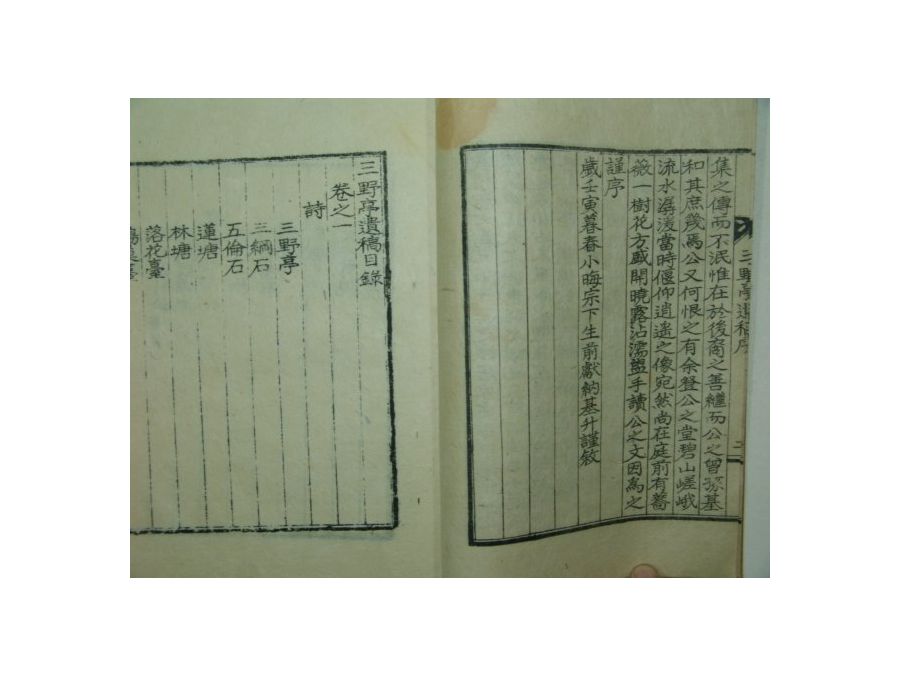 集之傳而不泯惟在於後裔之善繼而公之曾孫基
和其庶幾焉公又何恨之有余登公之堂碧山嵯峨
流水潺湲當時偃仰逍遙之像宛然尚在庭前有薔
薇一樹花方盛開曉露沾濡盥手讀公之文因為之
謹序
歲壬寅暮春小晦宗下生前獻納基升謹敘
三野亭遺稿序
二
三野亭遺稿目錄
卷之一
詩
三野亭
三綱石
五倫石
蓮塘
林塘
落花臺